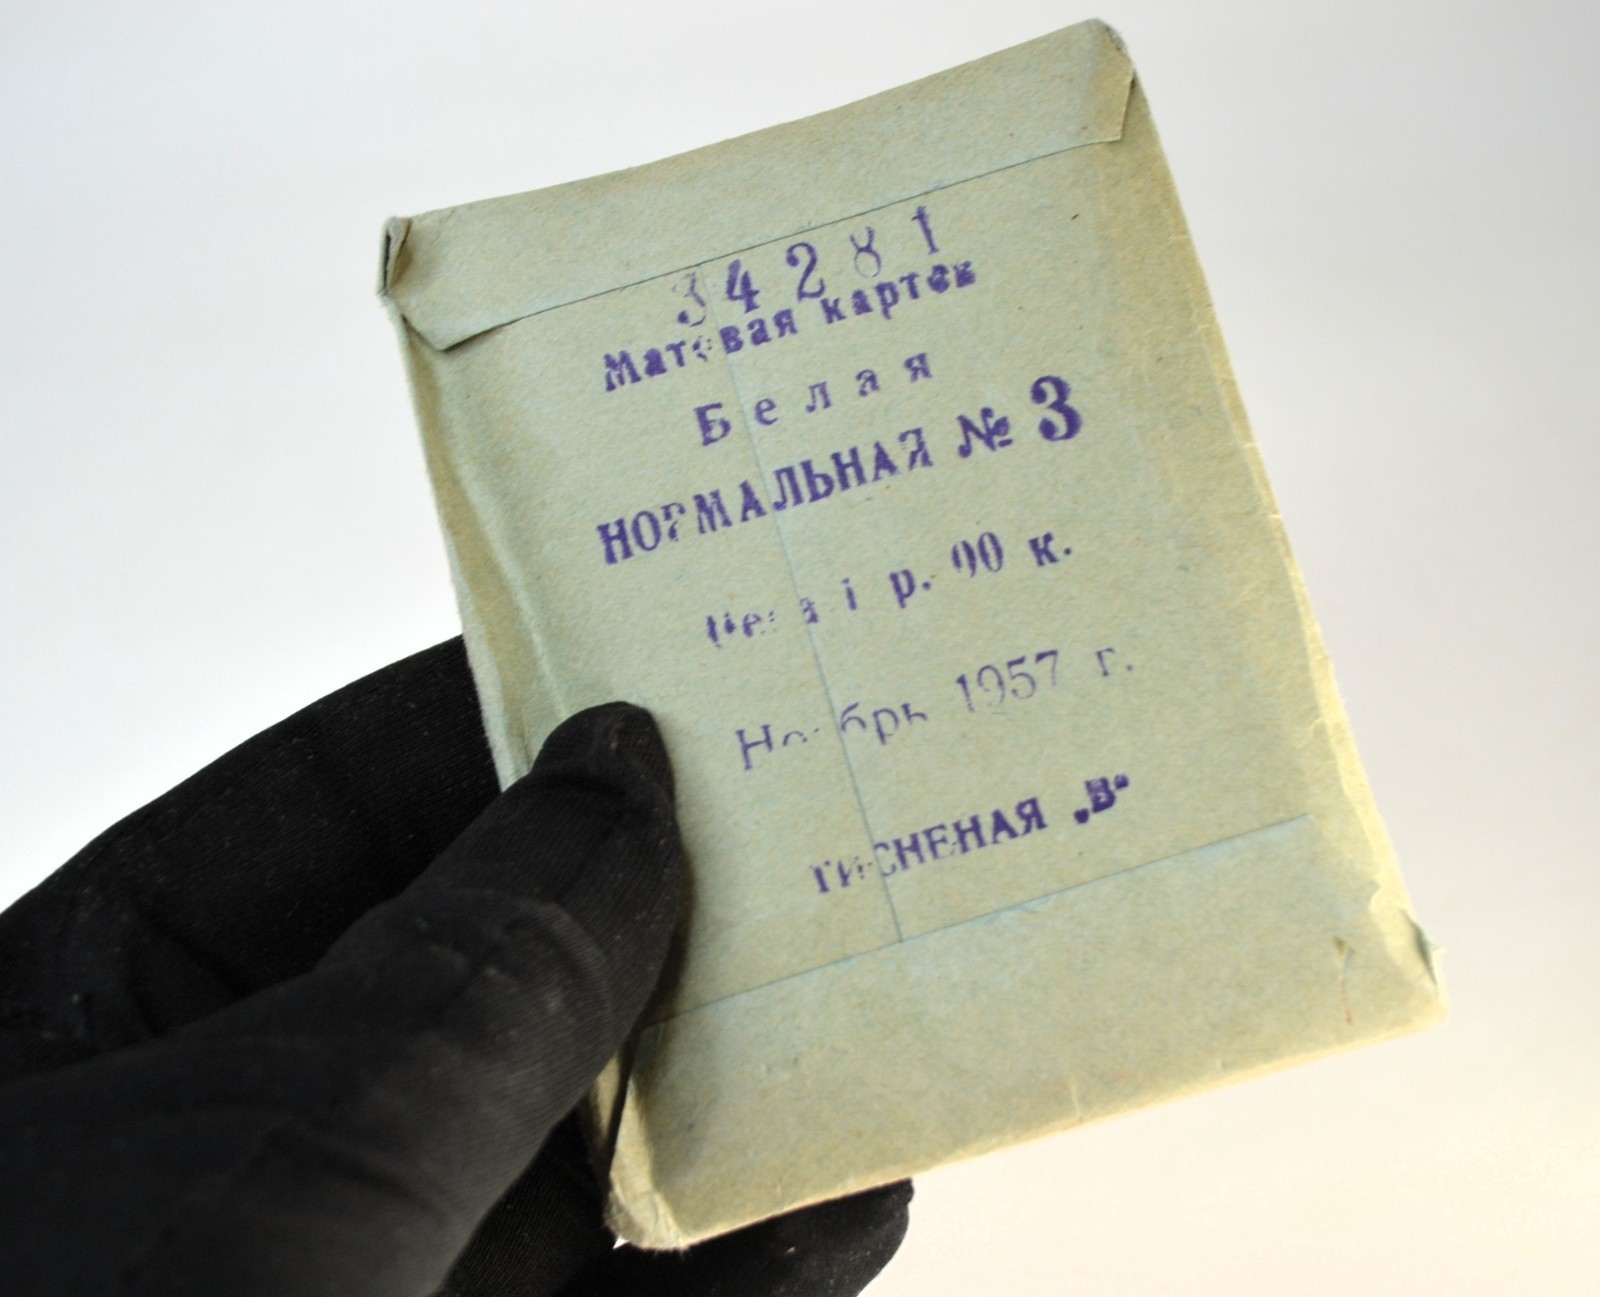 34281
Матовая картон
Белая
НОРМАЛЬНАЯ № 3
Цена 1 р. 90 к.
Ноябрь 1957 г.
ТИСНЕНАЯ „В“